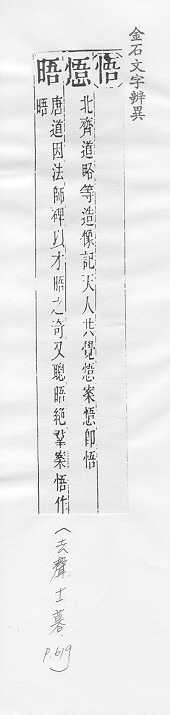 金石文字辨異
悟
晤
北齊道略等造像記天人共覺案即悟
唐道因法師碑以才晤之奇又聰晤絕羣案悟作
晤
(去聲十一暮.
P.619)